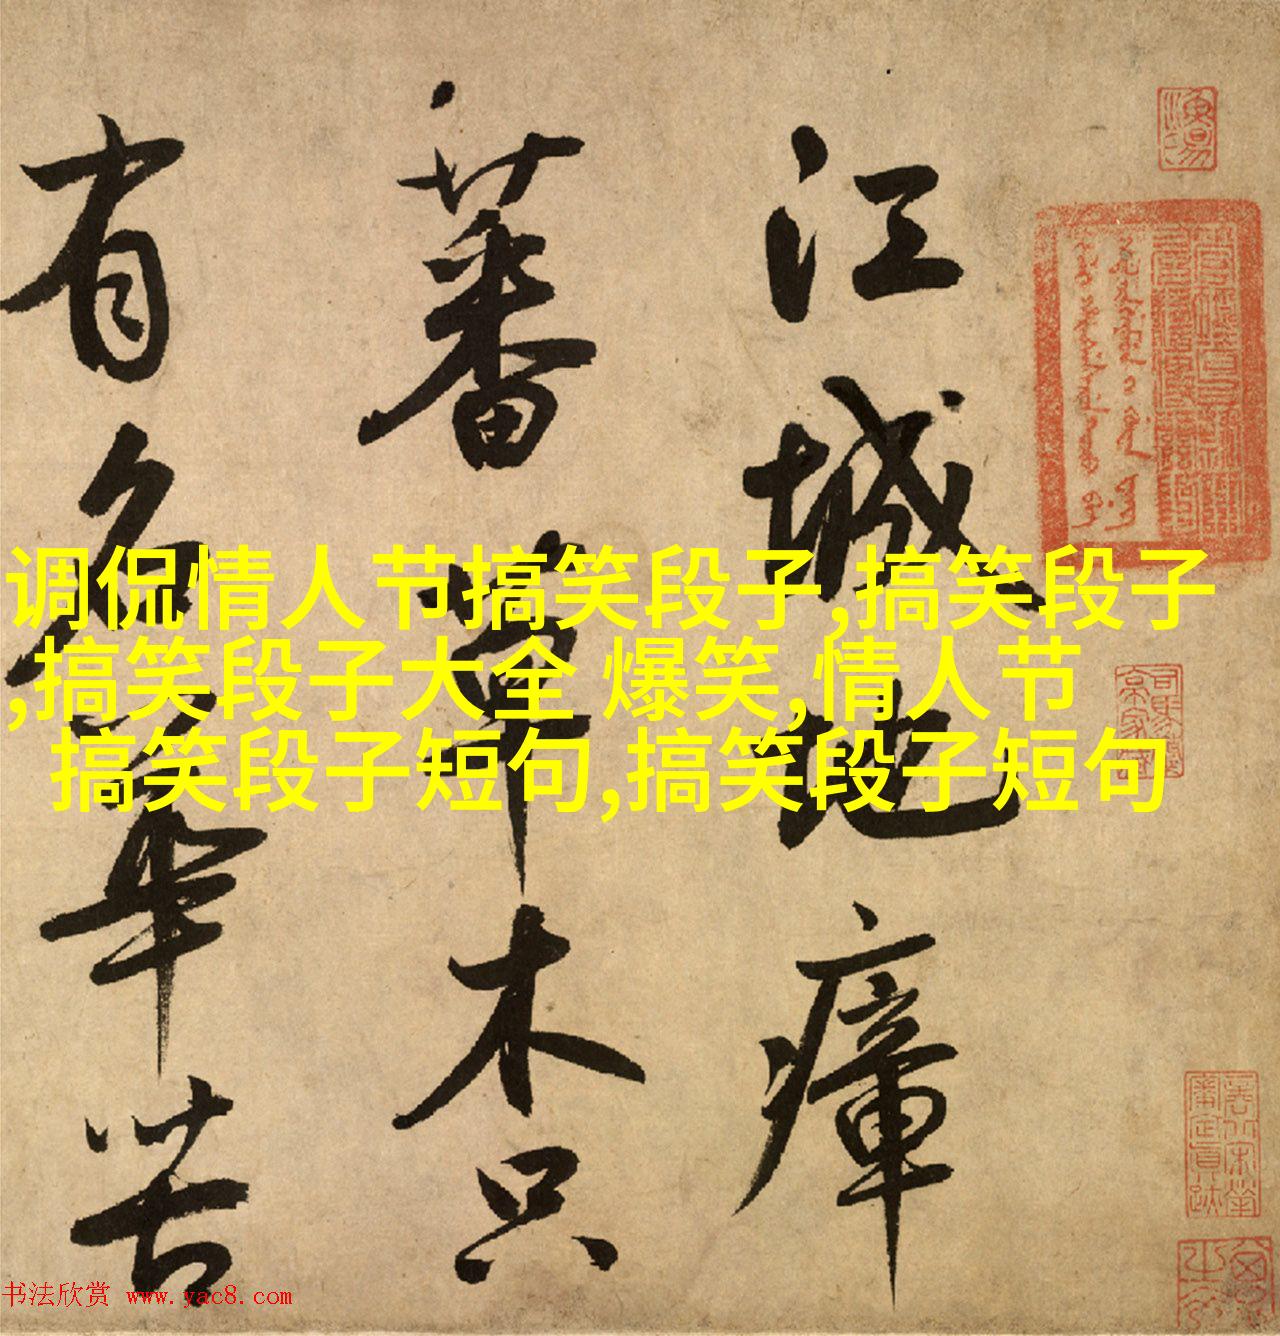 江城地瘴
蕃草木只
有名華苦
调侃情人节搞笑段子,搞笑段子
,搞笑段子大全 爆笑,情人节
搞笑段子短句,搞笑段子短句
书法欣赏 www.yac8.com